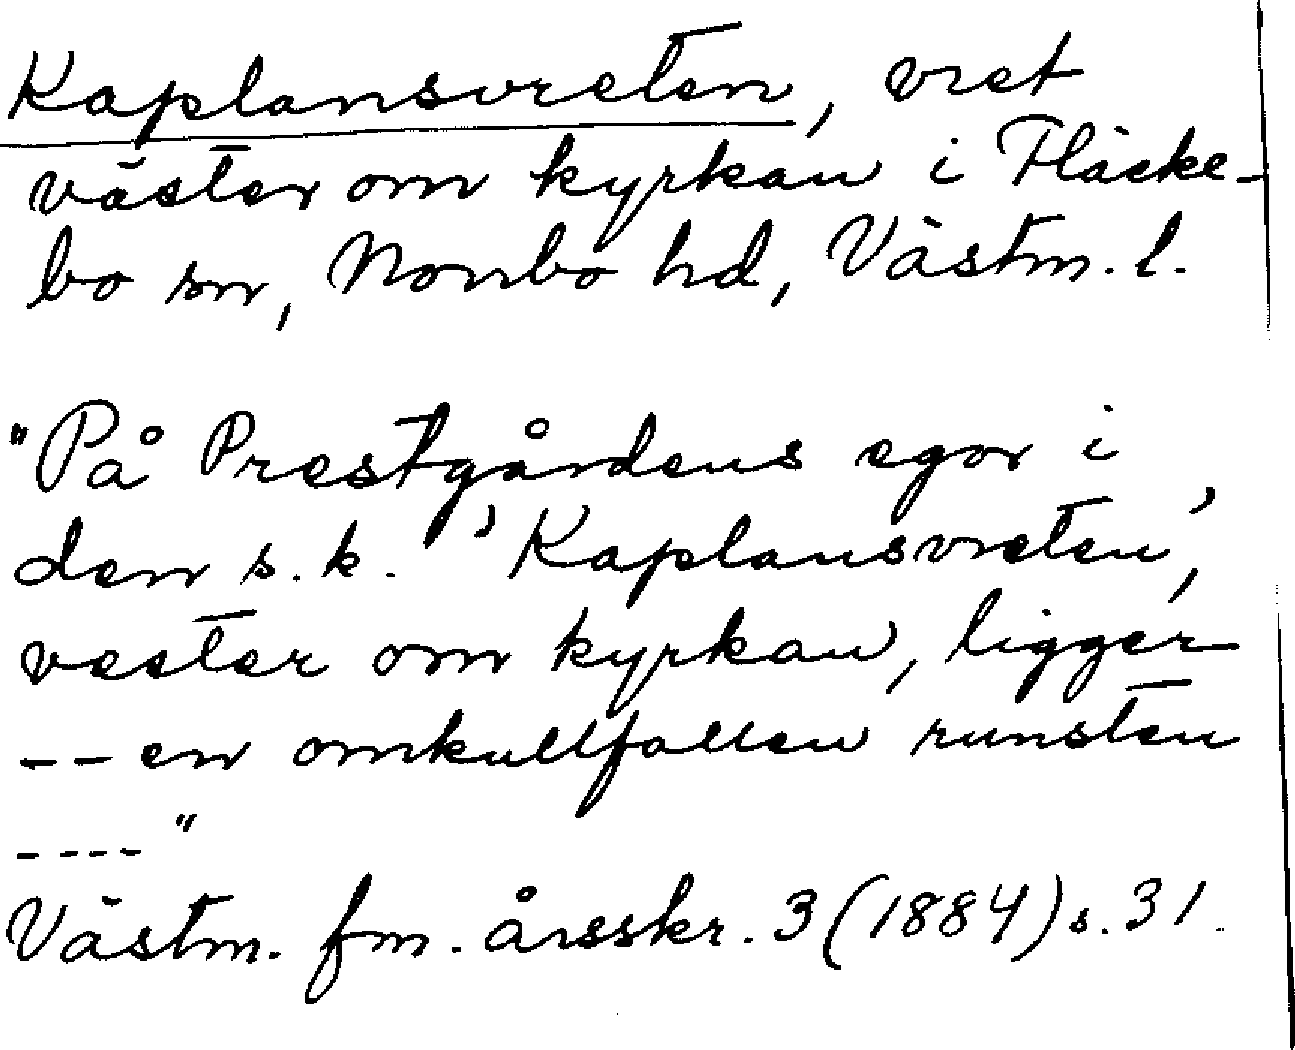 Kaplansvreten, vret
väster om kyrkan i Fläcke-
bo sn, Norrbo hd, Västm. l.
"På Prestgårdens egor i
den s.k. 'Kaplansvreten',
vester om kyrkan, ligger
-- en omkullfallen runsten
----"
Västm. fm. årsskr. 3 (1884) s. 31.